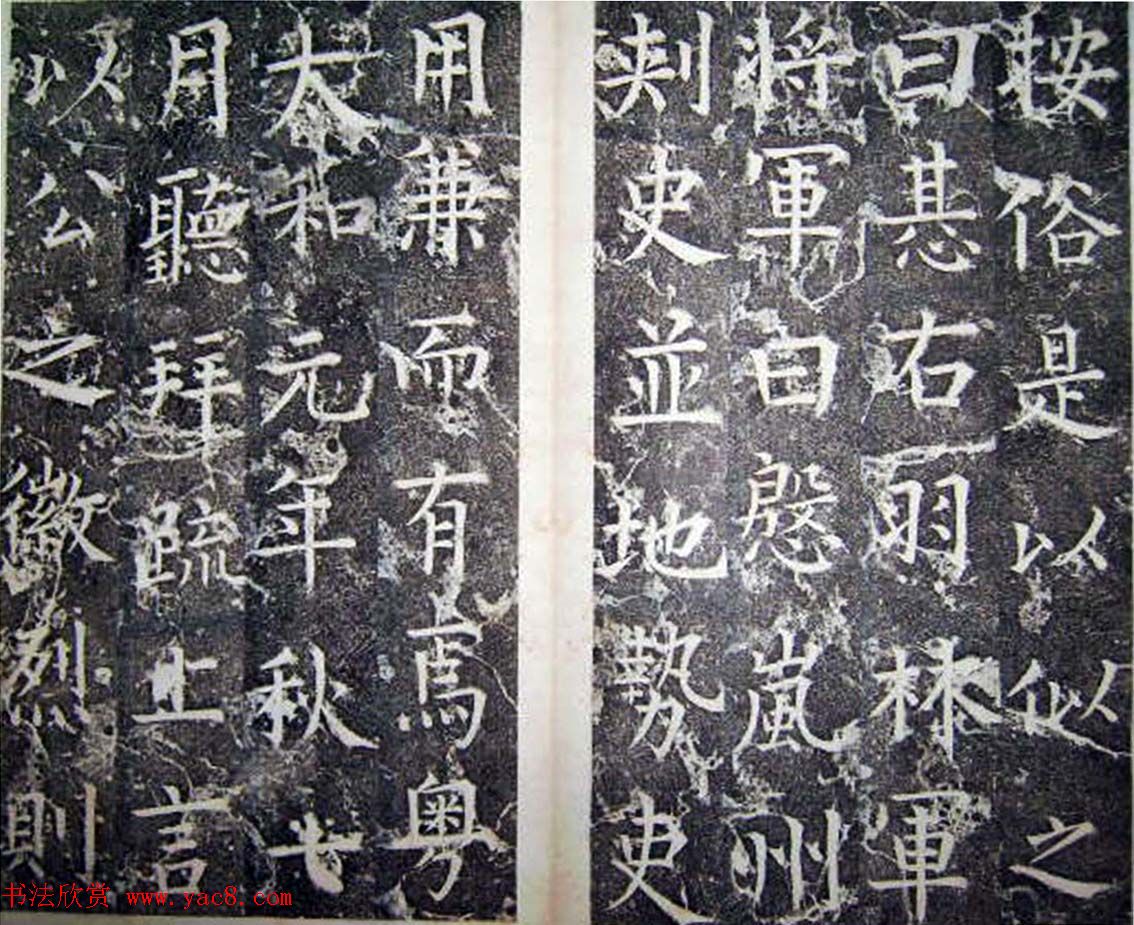 按俗是以似之
曰惎右羽林軍
將軍曰慇嵐州
刺史並地勢吏
用兼而有焉粤
大和元年秋七
月聽拜疏上言
以公之徽烈則
书法欣赏 www.yac8.com